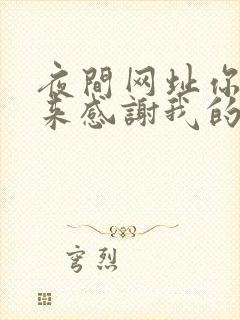 夜間网址你
来感謝我的
穹烈